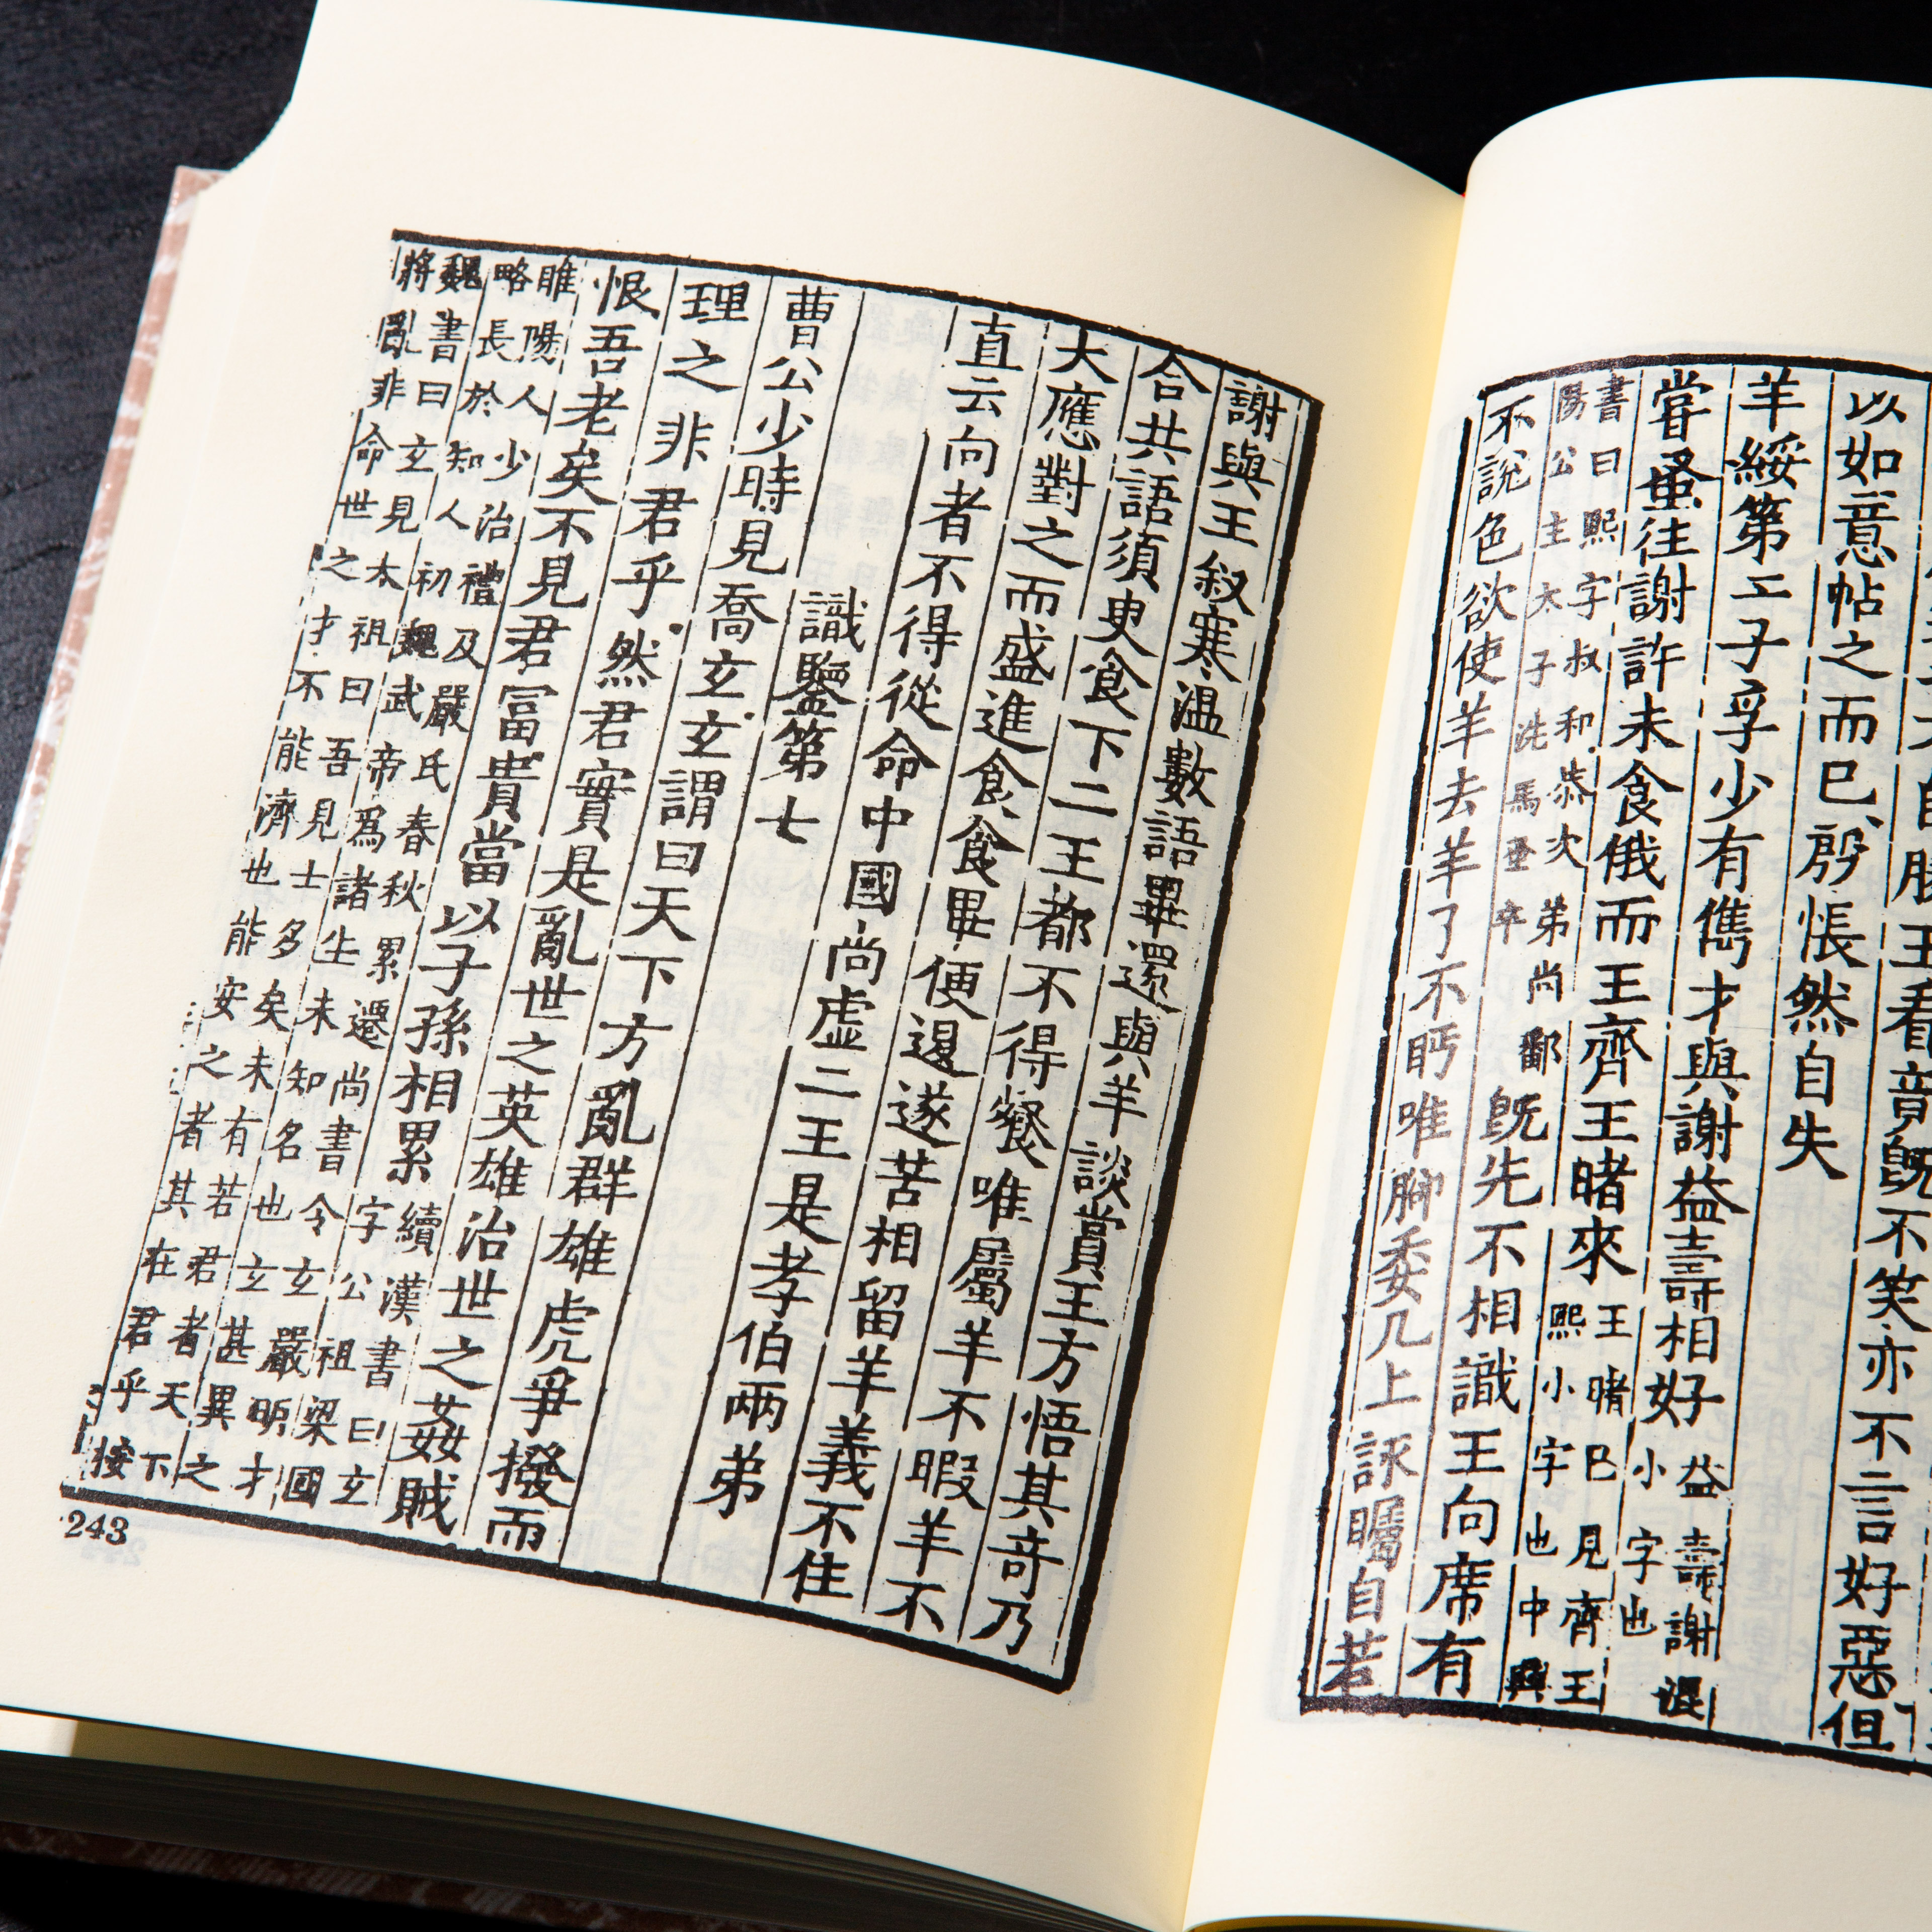 自勝王看竟既不笑亦不言好惡但
以如意帖之而已殷悵然自失
羊綏第二子孚少有儁才與謝益壽相好
益壽謝混
小字也
嘗蚤往謝許未食俄而王齊王睹來
王睹已見齊王
熙小字也中興
書曰熙字叔和恭次弟尚鄱
陽公主大子洗馬蚤卒
既先不相識王向席有
不說色欲使羊去羊了不眄唯脚委几上詠矚自若
謝與王叙寒温數語畢還與羊談賞王方悟其竒乃
合共語須臾食下二王都不得餐唯屬羊不暇羊不
大應對之而盛進食食畢便退遂苦相留羊義不住
直云向者不得從命中國尚虚二王是孝伯兩弟
識鑒第七
曹公少時見喬玄玄謂曰天下方亂群雄虎爭撥而
理之非君乎然君實是亂世之英雄治世之姦賊
恨吾老矣不見君冨貴當以子孫相累
續漢書曰玄
字公祖梁國
睢陽人少治禮及嚴氏春秋累遷尚書令玄嚴明才
略長於知人初魏武帝爲諸生未知名也玄甚異之
魏書曰玄見太祖曰吾見士多矣未有若君者天下
將亂非命世之才不能濟也能安之者其在君乎按
243